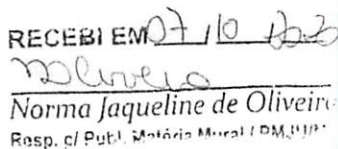 RECEBI EM 07 / 10 /
Norma Jaqueline de Oliveir
Resp. c/ Publ. Matéria Mural / PM